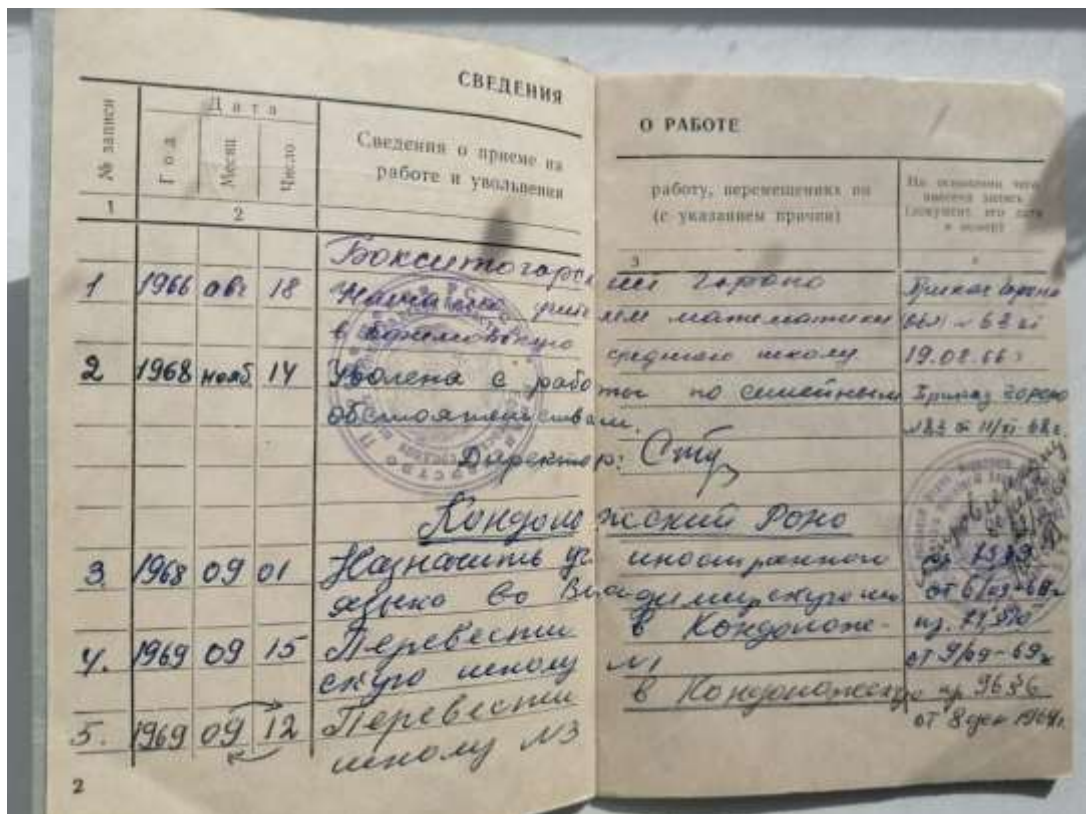 СВЕДЕНИЯ
О РАБОТЕ
№ записи
Дата
Год
Месяц
Число
Сведения о приеме на
работу, перемещениях по
работе и увольнении
(с указанием причин)
На основании чего
внесена запись
(документ, его дата
и номер)
1
2
3
4
Бокситогорский Гороно
1 1966 авг 18 учителем математики Приказ Гороно
в среднюю школу 19.08.66г
2 1968 нояб. 14 Уволена с работы по семейным Приказ гороно
обстоятельствам. от 11/XI 68г.
Директор:
Кондопожский Роно
3. 1968 09 01 Назначить уч. иностранного
языка во Владимирскую от 6/09-68г
4. 1969 09 15 Перевести в Кондопож-
скую школу №1 от 9/09-69г
5. 1969 09 12 Перевести в Кондопожскую пр 9636
школу №3 от 8 дек 1969г.
2